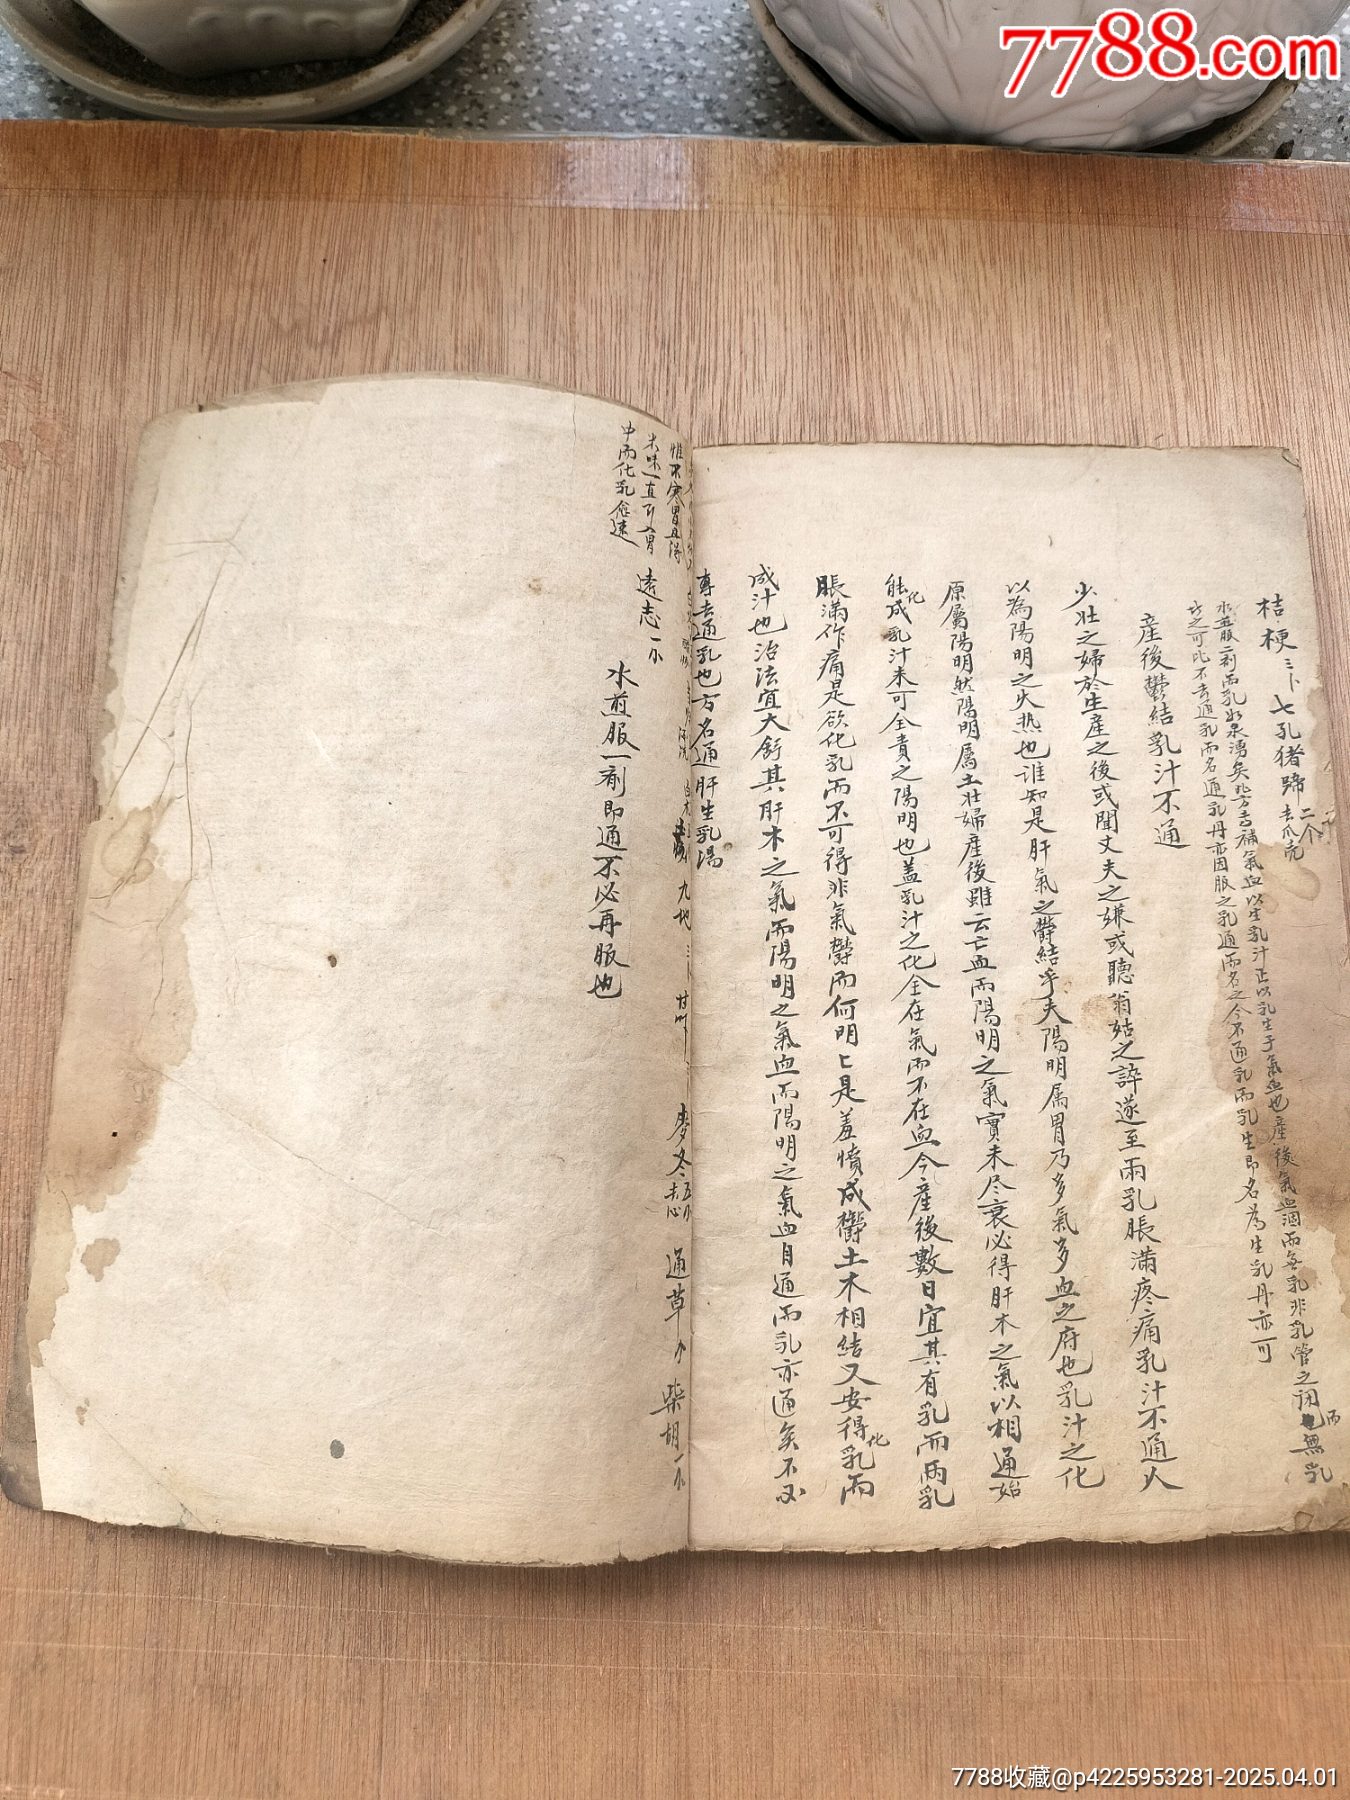 7788.com
桔梗三卜 七孔猪蹄二个去爪壳
水煎服二剂而乳如泉湧矣此方专補氣血以生乳汁正以乳生于氣血也產後氣血涸而每乳非乳管之闭也無乳
什之可比不去通乳而名通乳丹亦因服之乳通而名之今不通乳而乳生即名為生乳丹亦可
產後鬱結乳汁不通
少壮之婦於生產之後或聞丈夫之嫌或聽翁姑之誶遂至兩乳脹滿疼痛乳汁不通人
以為陽明之火热也谁知是肝氣之鬱結乎夫陽明属胃乃多氣多血之府也乳汁之化
原屬陽明然陽明属土壮婦產後雖云亡血而陽明之氣實未尽衰必得肝木之氣以相通始
能化成乳汁未可全責之陽明也盖乳汁之化全在氣而不在血今產後數日宜其有乳而两乳
脹滿作痛是欲化乳而不可得非氣鬱而何明匕是羞憤成欝土木相結又安得化乳而
成汁也治法宜大舒其肝木之氣而陽明之氣血而陽明之氣血自通而乳亦通矣不必
專去通乳也方名通肝生乳湯
九地 三卜 甘草 麥冬五卜去心 通草 卜 柴胡一卜
惟不寒胃且得
米味一直引入胃
中而化乳愈速
遠志一卜
水煎服一剂即通不必再服也
7788收藏@p4225953281-2025.04.01